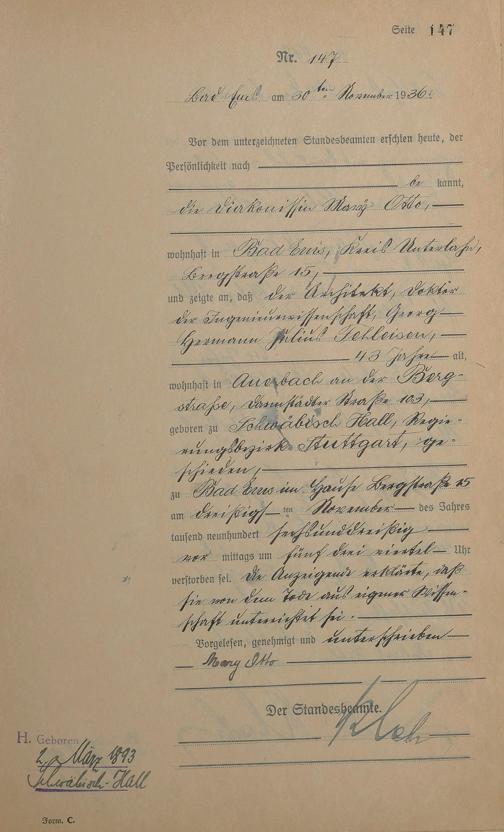 Seite 147
Nr. 147
Bad Ems am 30ten November 1936.
Vor dem unterzeichneten Standesbeamten erschien heute, der
Persönlichkeit nach
be kannt,
die Diakonissin Mary Otto,
wohnhaft in Bad Ems, Kreis Unterlahn,
Bergstraße 15,
und zeigte an, daß der Architekt, Doktor
der Ingenieurwissenschaft, Georg
Hermann Julius
43 Jahre alt,
wohnhaft in Auerbach an der Berg-
straße, Darmstädter Straße 103,
geboren zu Schwäbisch Hall, Regie-
rungsbezirk Stuttgart, ge-
schieden,
zu Bad Ems im Hause Bergstraße 15
am dreißigs ten November des Jahres
tausend neunhundert sechsunddreißig
vor mittags um fünf drei viertel Uhr
verstorben sei. Die Anzeigende erklärte, daß
sie von dem Tode aus eigener Wissen-
schaft unterrichtet sei.
Vorgelesen, genehmigt und unterschrieben
Mary Otto
Der Standesbeamte.
H. Geboren
März 1893
Schwäbisch-Hall
Form. C.